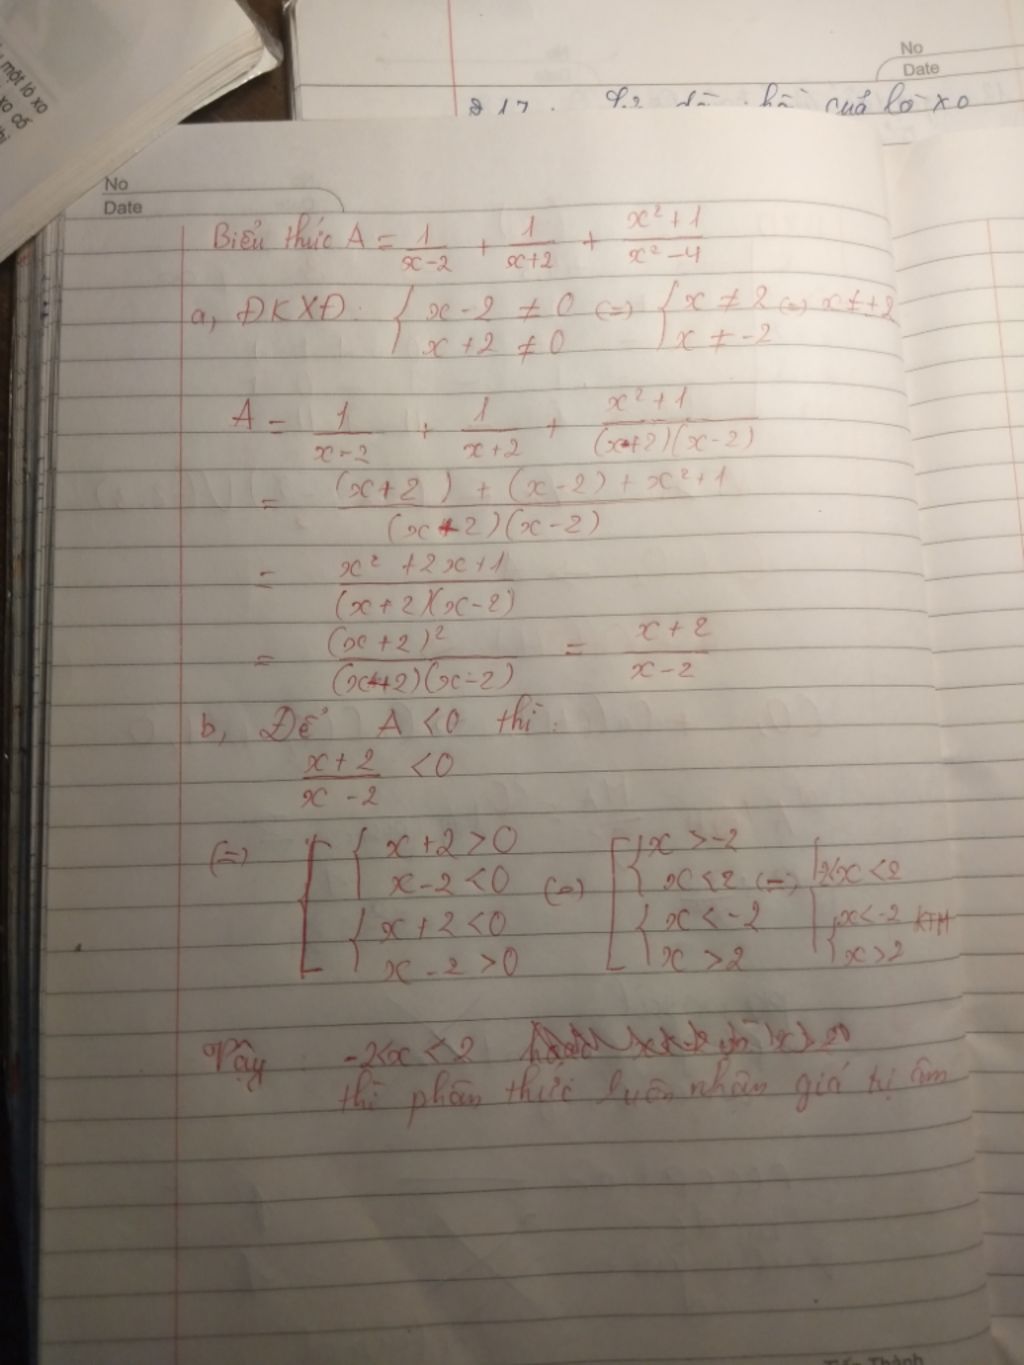 một lò xo
No
Date
quả lò xo
No
Date
Biểu thức A = 1/(x-2) + 1/(x+2) + (x²+1)/(x²-4)
a, ĐKXĐ: { x-2 ≠ 0 (=) { x ≠ 2 (=) x ≠ ±2
x+2 ≠ 0 x ≠ -2
A = 1/(x-2) + 1/(x+2) + (x²+1)/((x+2)(x-2))
= ((x+2) + (x-2) + x²+1)/((x+2)(x-2))
= (x²+2x+1)/((x+2)(x-2))
= (x+2)²/((x+2)(x-2)) = (x+2)/(x-2)
b, Để A <0 thì:
(x+2)/(x-2) <0
(=) [ { x+2>0 (=) [ { x >-2 (=) [ -2<x<2
x-2<0 x<2
{ x+2<0 { x<-2 { x<-2 KTM
x-2>0 x>2 x>2
Vậy: -2<x<2
thì phân thức luôn nhận giá trị âm